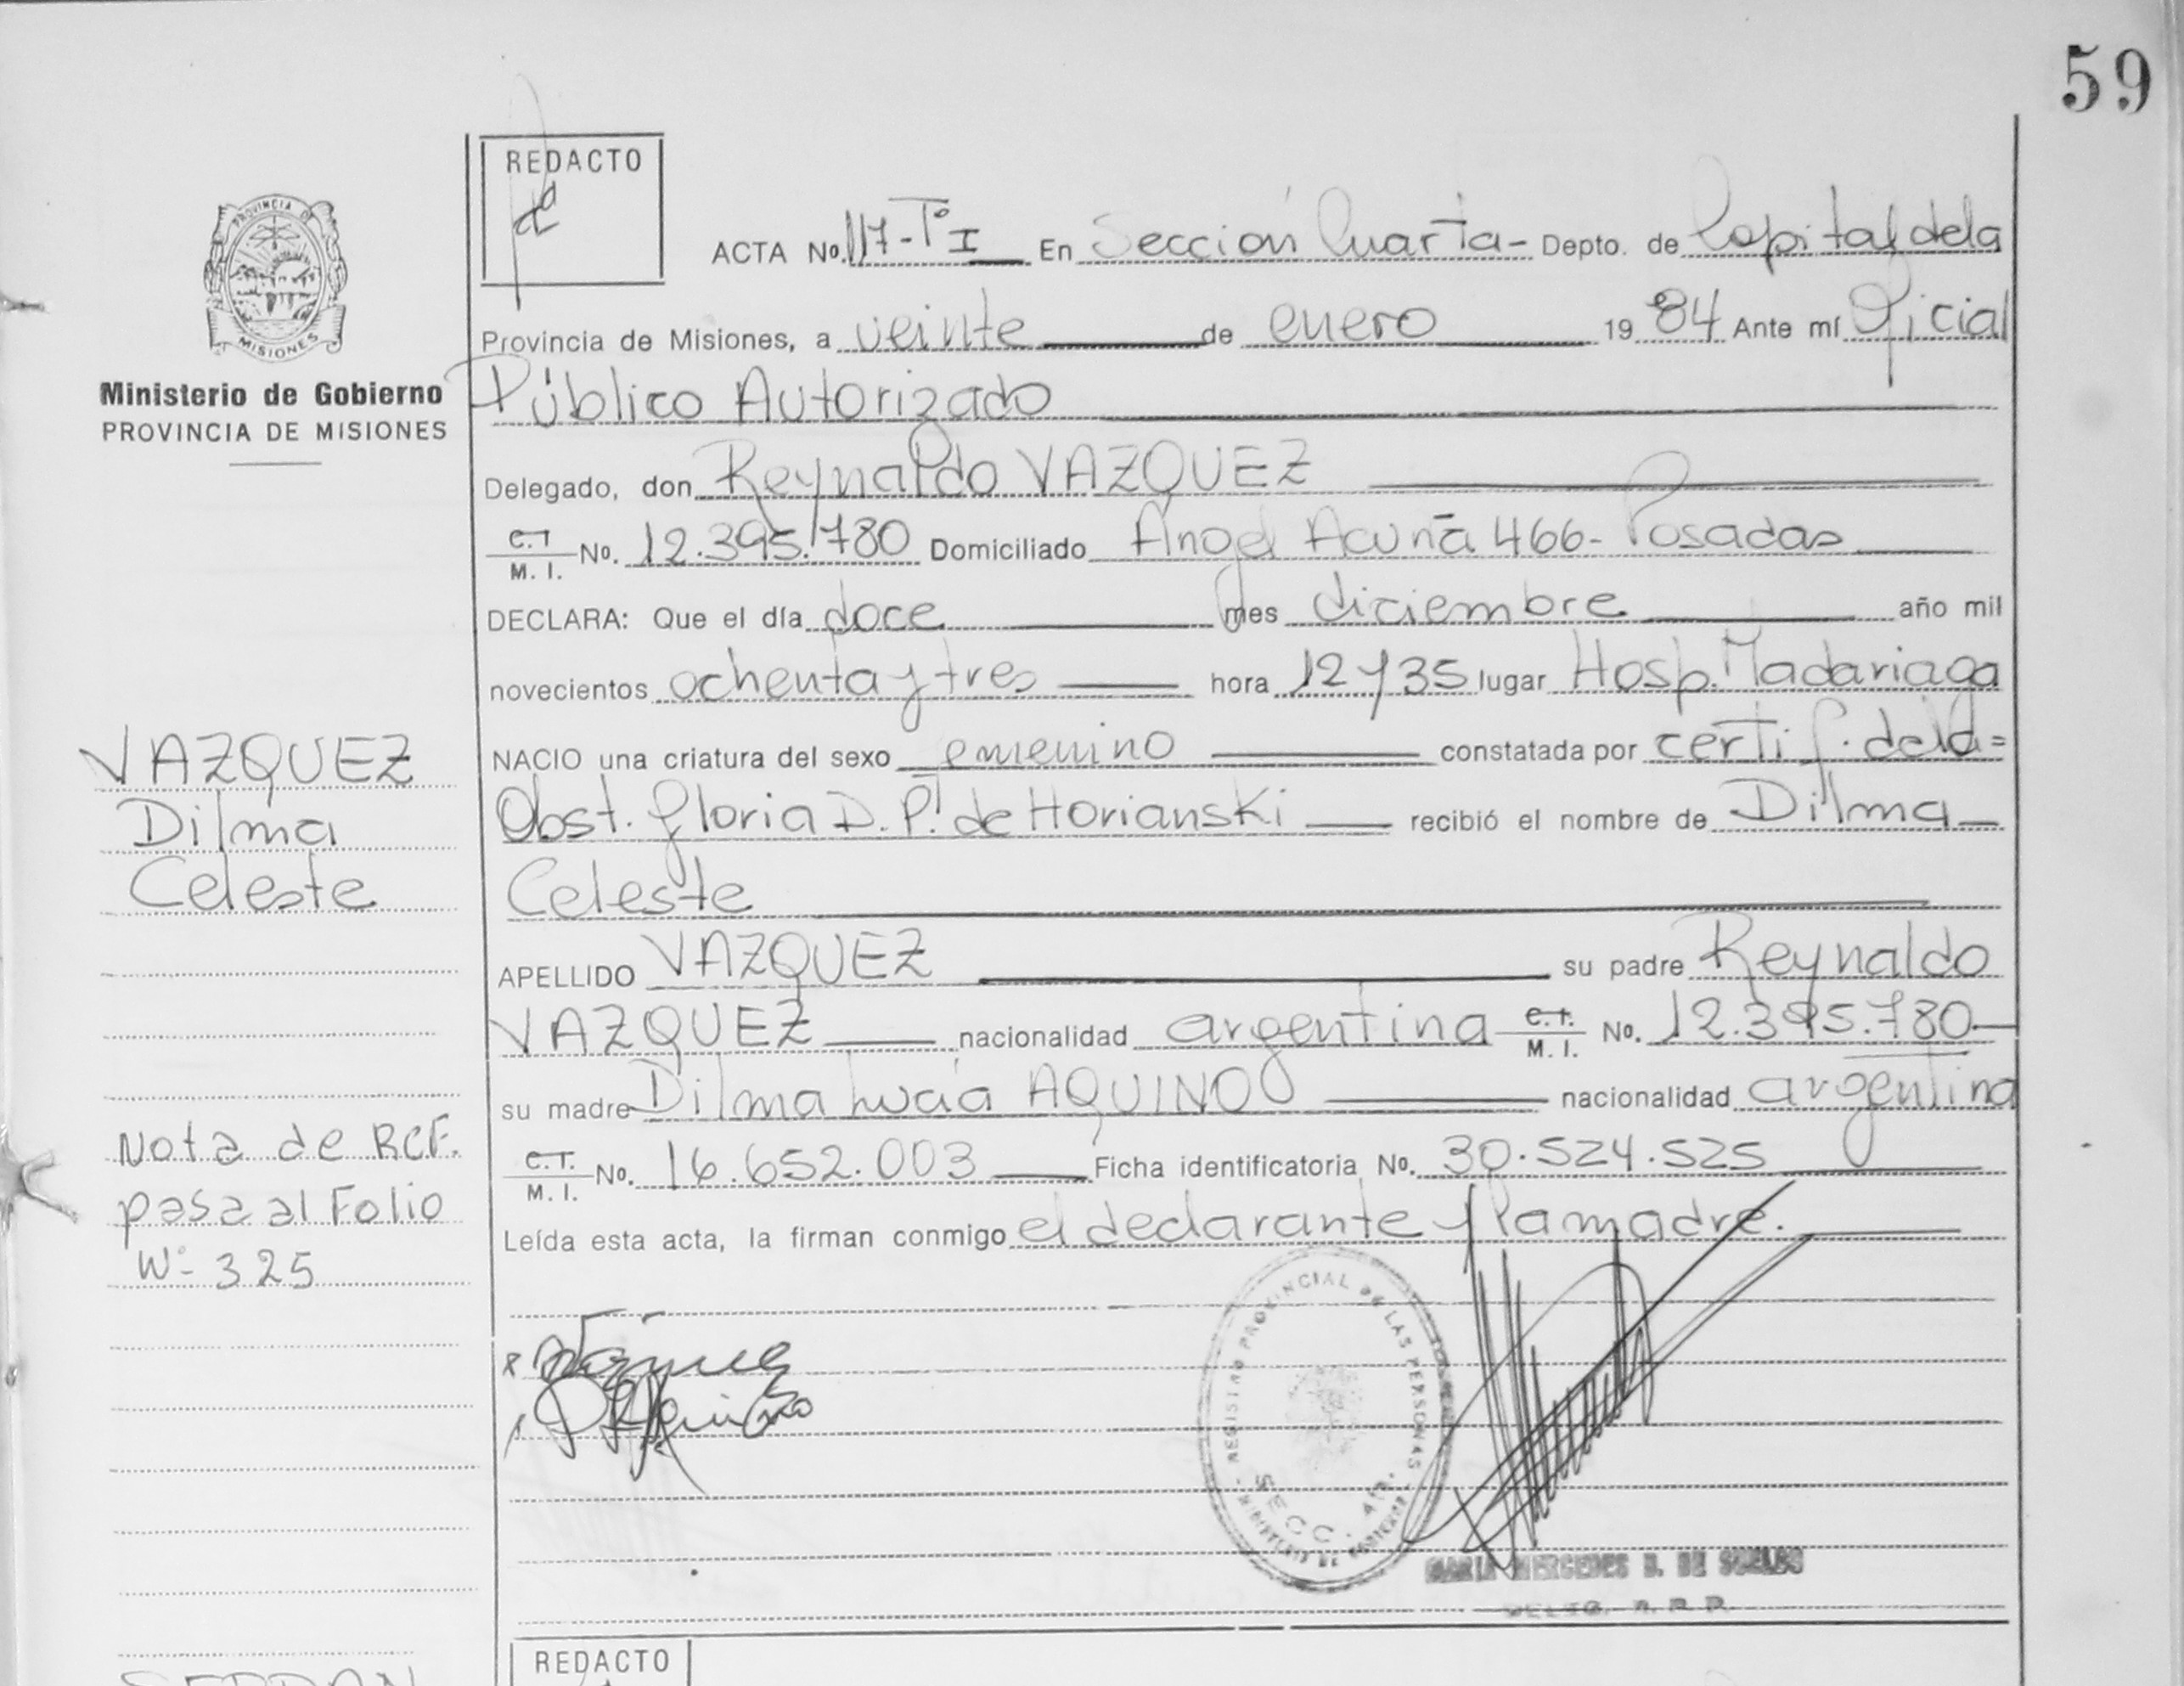 59
REDACTO
ACTA Nº 117-Tº I En Sección Cuarta- Depto. de Capital de la
Provincia de Misiones, a veinte de enero 1984 Ante mí Oficial
Público Autorizado
Delegado, don Reynaldo VAZQUEZ
C.I. M. I. No. 12.395.780 Domiciliado Angel Acuña 466- Posadas
DECLARA: Que el día doce mes diciembre año mil
novecientos ochenta y tres hora 12 y 35 lugar Hosp. Madariaga
NACIO una criatura del sexo femenino constatada por certif. de la=
Obst. Gloria D. P. de Horianski recibió el nombre de Dilma
Celeste
APELLIDO VAZQUEZ su padre Reynaldo
VAZQUEZ nacionalidad argentina C.I. M. I. No. 12.395.780
su madre Dilma Lucia AQUINO nacionalidad argentina
C.I. M. I. No. 16.652.003 Ficha identificatoria No. 30.524.525
Leída esta acta, la firman conmigo el declarante y la madre.
PROVINCIA D
MISIONES
Ministerio de Gobierno
PROVINCIA DE MISIONES
VAZQUEZ
Dilma
Celeste
Nota de RCF.
pasa al Folio
Nº 325
REGISTRO PROVINCIAL DE LAS PERSONAS
SECC. 4ta.
MINISTERIO DE GOBIERNO
MARIA MERCEDES B. DE
REDACTO